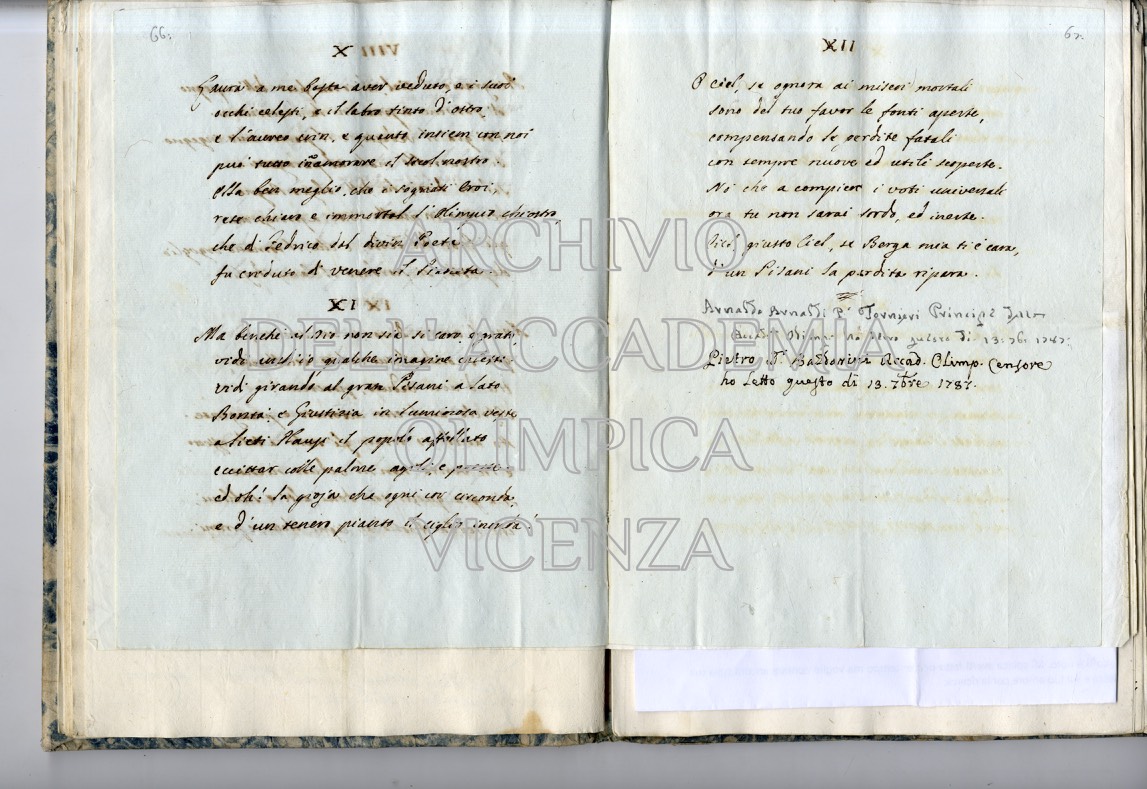 66.
X
Laura a me basta aver veduto, e i suoi
occhi celesti, e il labro tinto d'ostro,
e l'aureo crin, e quanto insiem con noi
può tutto innamorare il secol nostro.
Ma ben meglio, che i sognati Eroi
rese chiaro e immortal l'Olimpico chiostro,
che di Fedrico del divin Poeta
fu creduto di Venere il Pianeta.
XI
Ma benchè al Dio non sia sì caro, e grato,
vidi anch'io qualche imagine celeste:
vidi girando al gran Pisani a lato
Bontà, e Giustizia in luminosa veste,
a lieti plausi il popolo affollato
e colle palme agili, e preste
ed oh! la gioja che ogni cor circonda,
e d'un tenero pianto il ciglio inonda!
67.
XII
O Ciel, se ognora ai miseri mortali
sono del tuo favor le fonti aperte,
compensando le perdite fatali
con sempre nuove ed utili scoperte.
Nè che a compier i voti universali
ora tu non sarai sordo, ed inerte.
giusto Ciel, se Berga mia ti è cara,
d'un Pisani la perdita ripara.
Arnaldo Arnaldi P.º Tornieri Principe
ho letto questo dì 13. 7bre 1787.
Pietro D.r Accad. Olimp. Censore
ho Letto questo dì 13. 7bre 1787.
ARCHIVIO
DELL'ACCADEMIA
OLIMPICA
VICENZA